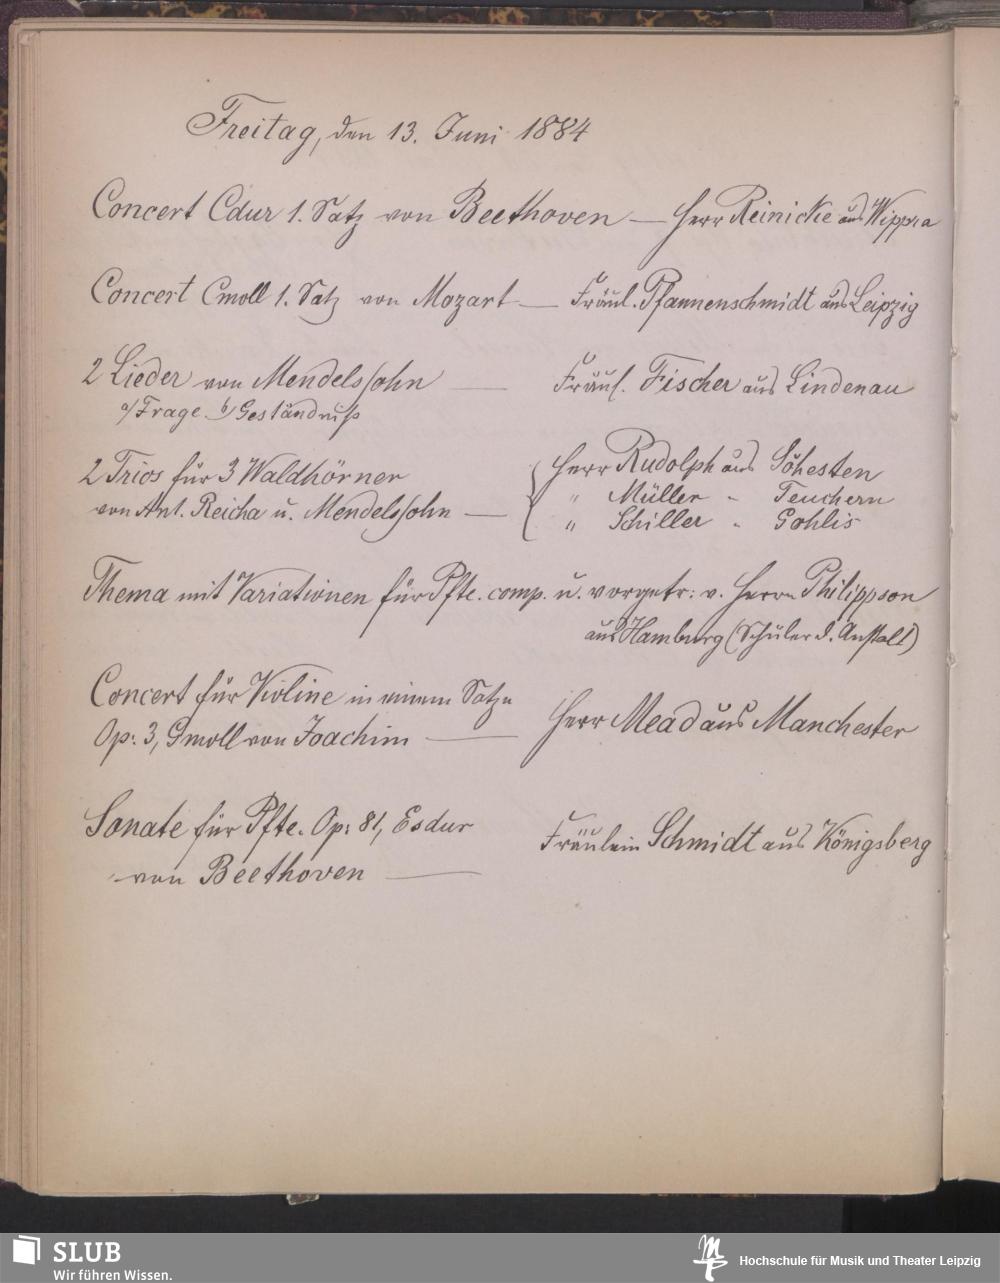 Freitag, den 13. Juni 1884
Concert Cdur 1. Satz von Beethoven — Herr Reinicke aus Wippra
Concert Cmoll 1. Satz von Mozart — Fräul. Pfannenschmidt aus Leipzig
2 Lieder von Mendelssohn — Fräul. Fischer aus Lindenau
a/ Frage b/ Geständniß
2 Trios für 3 Waldhörner
von Ant. Reicha u. Mendelssohn —
Herr Rudolph aus Söhesten
" Müller - Teuchern
" Schiller - Gohlis
Thema mit Variationen für Pfte. comp. u. vorgetr: v. Herrn Philippson
aus Hamburg (Schüler d. Anstalt)
Concert für Violine in einem Satze
Op: 3, Gmoll von Joachim — Herr Mead aus Manchester
Sonate für Pfte. Op: 81, Esdur
von Beethoven — Fräulein Schmidt aus Königsberg
SLUB
Wir führen Wissen.
Hochschule für Musik und Theater Leipzig